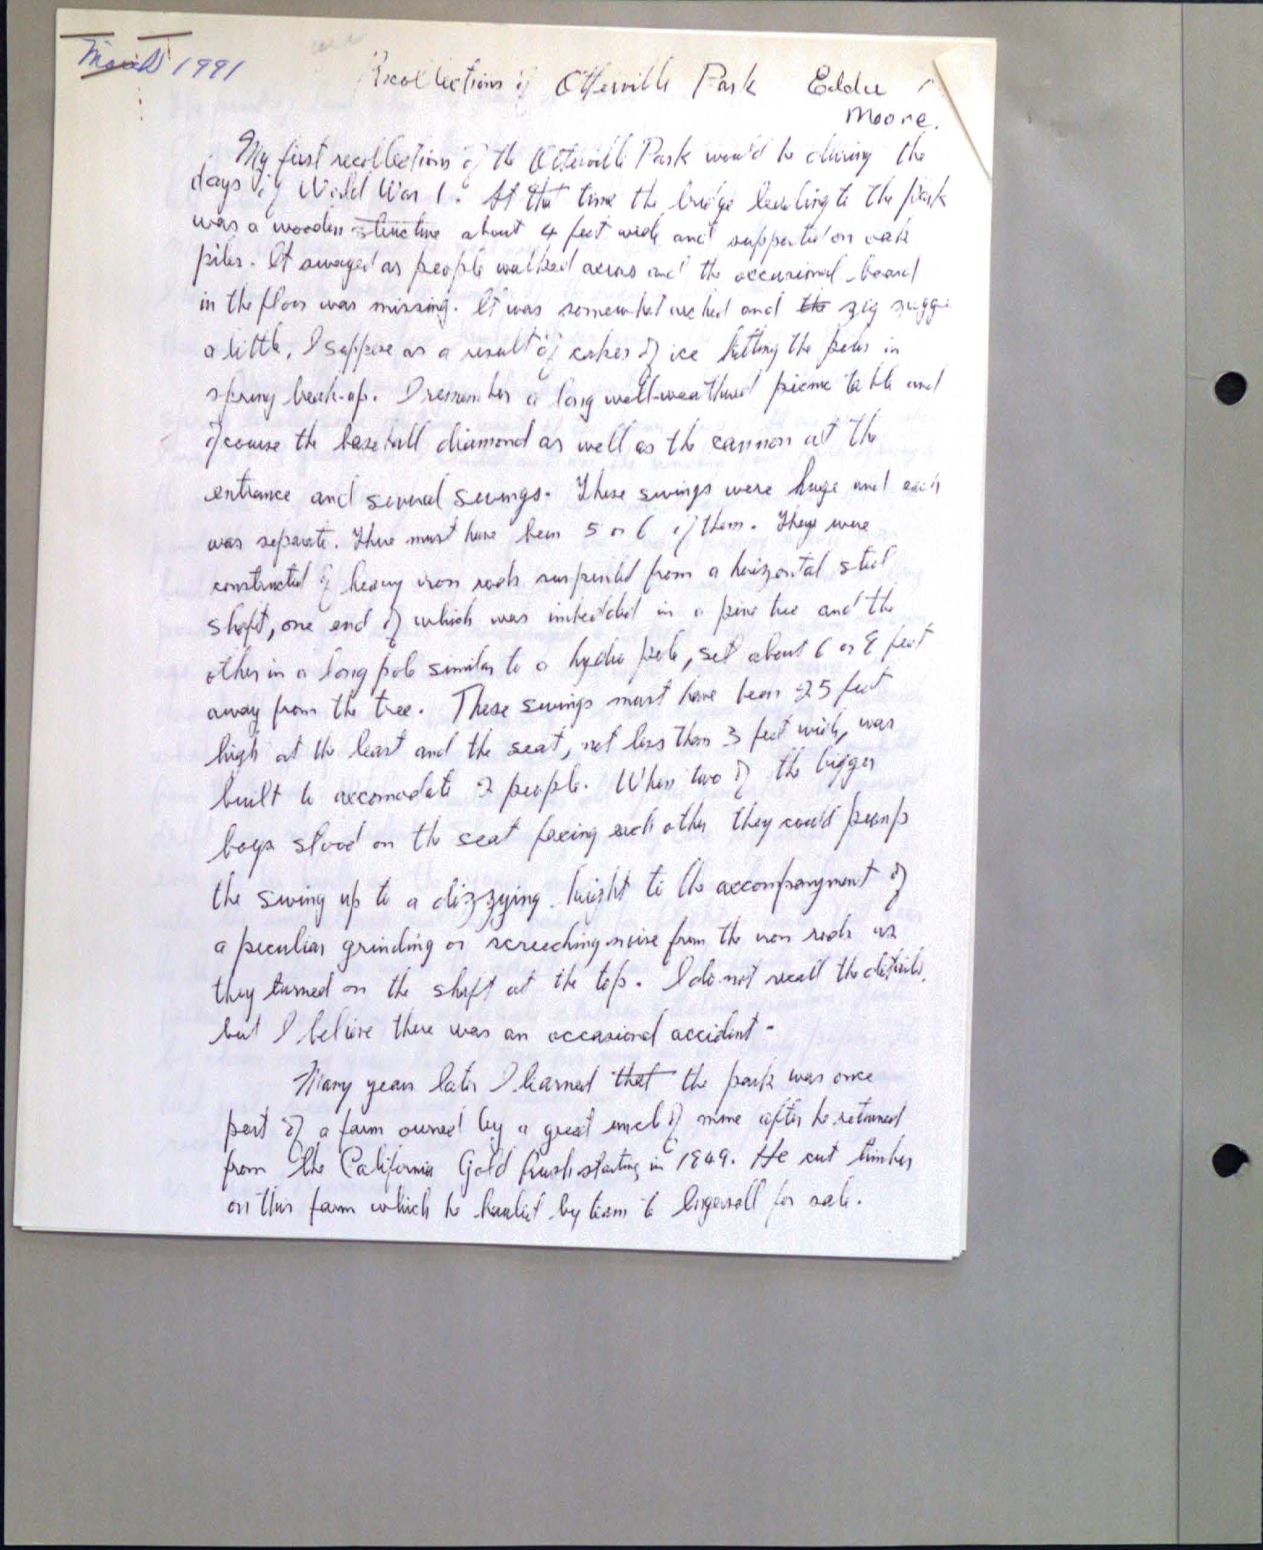 March 1991
Recollections of Otterville Park Eddie
Moore.
My first recollections of the Otterville Park would be during the
days of World War 1. At the time the bridge leading to the park
was a wooden structure about 4 feet wide and supported on oak
piles. It swayed as people walked across and the occasional board
in the floor was missing. It was somewhat arched and the zig zagged
a little, I suppose as a result of cakes of ice hitting the piers in
spring break-up. I remember a long well-weathered picnic table and
of course the baseball diamond as well as the cannon at the
entrance and several swings. These swings were huge and each
was separate. There must have been 5 or 6 of them. They were
constructed of heavy iron rods suspended from a horizontal steel
shaft, one end of which was imbedded in a pine tree and the
other in a long pole similar to a hydro pole, set about 6 or 8 feet
away from the tree. These swings must have been 25 feet
high at the least and the seat, not less than 3 feet wide, was
built to accomodate 2 people. When two of the bigger
boys stood on the seat facing each other they could pump
the swing up to a dizzying height to the accompanyment of
a peculiar grinding or screeching noise from the iron rods as
they turned on the shaft at the top. I do not recall the details,
but I believe there was an occasional accident.
Many years later I learned that the park was once
part of a farm owned by a great uncle of mine after he returned
from the California Gold Rush starting in 1849. He cut timber
on this farm which he hauled by team to Ingersoll for sale.